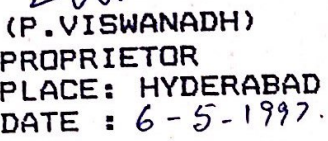 (P.VISWANADH)
PROPRIETOR
PLACE: HYDERABAD
DATE : 6-5-1997.